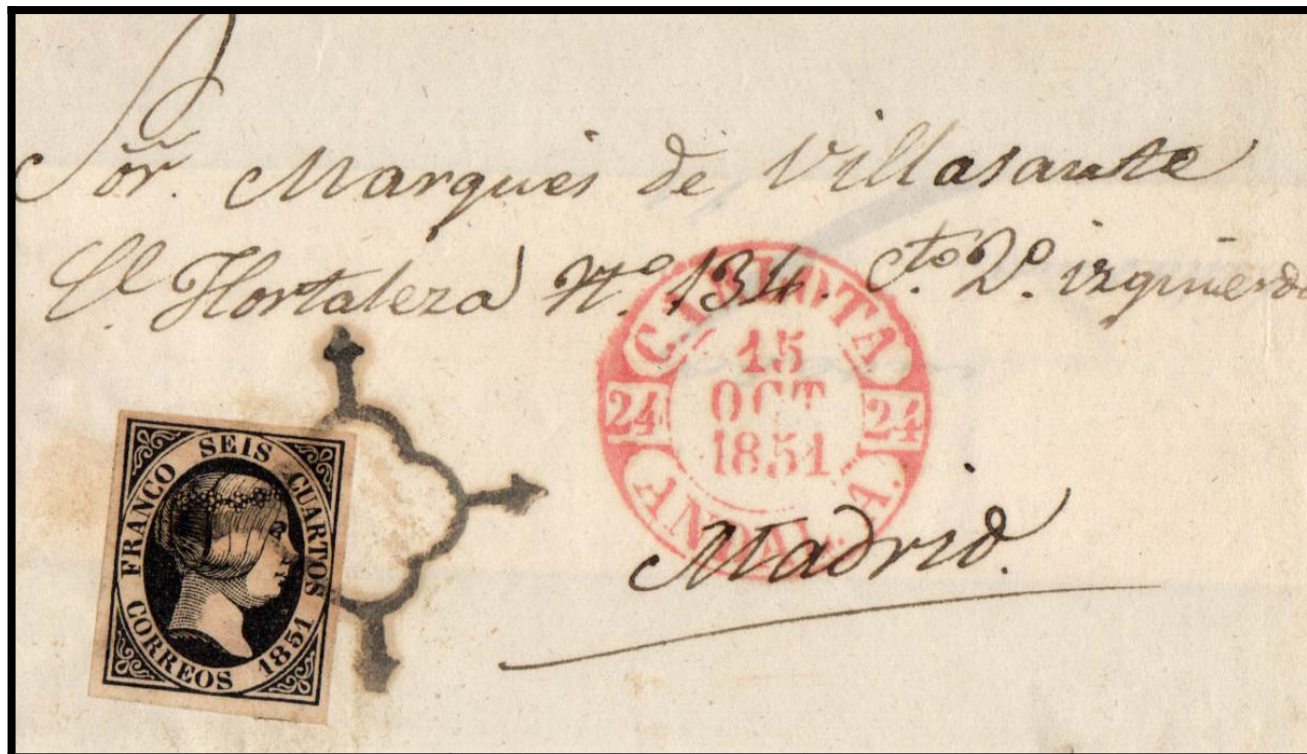 Sõr. Marques de Villasante
Cl. Hortaleza Nº. 134. Cto. 2º. izquierda
CARLOTA
15
OCT
1851
24 24
Madrid.
FRANCO SEIS CUARTOS
CORREOS 1851